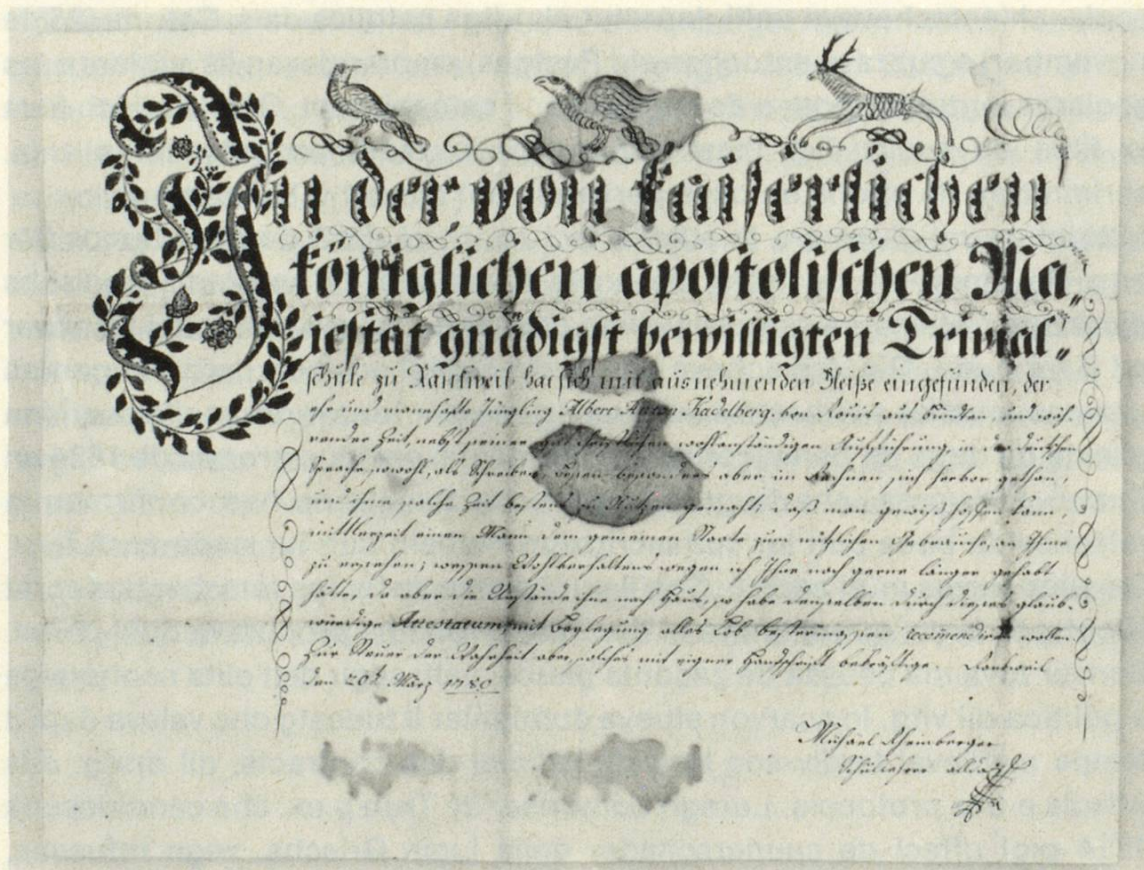 In der von kaiserlichen
königlichen apostolischen Ma„
iestät gnädigst bewilligten Trivial„
schule zu Rankweil hat sich mit ausnehmenden Fleiße eingefunden, der
ehr und mannhafte Jüngling Albert Anton Kadelberg, von Ruis aus Bündten, und wäh„
render Zeit, nebst seiner wohlanständigen Aufführung, in der deutschen
Sprache, sowohl als Schreiben, aber im Rechnen sich hervor gethan,
und seine solche Zeit bestens zu Nutzen gemacht, daß man gewiß hoffen kann,
mittlerzeit einen Mann dem gemeinen Staate zum nützlichen Gebrauche, in Ihme
zu erziehen; wessen Wohlverhaltens wegen ich Ihne noch gerne länger gehabt
hätte, da aber die Umstände ihne nach Haus, so habe denselben durch dieses glaub„
würdige Attestatum mit Beylegung alles Lob bestermassen recomendirt wollen.
Zur Steuer der Wahrheit aber solches mit eigner Handschrift bekräftige. Rankweil
den 20t März 1780
Michael Rheinberger
Schullehrer allda